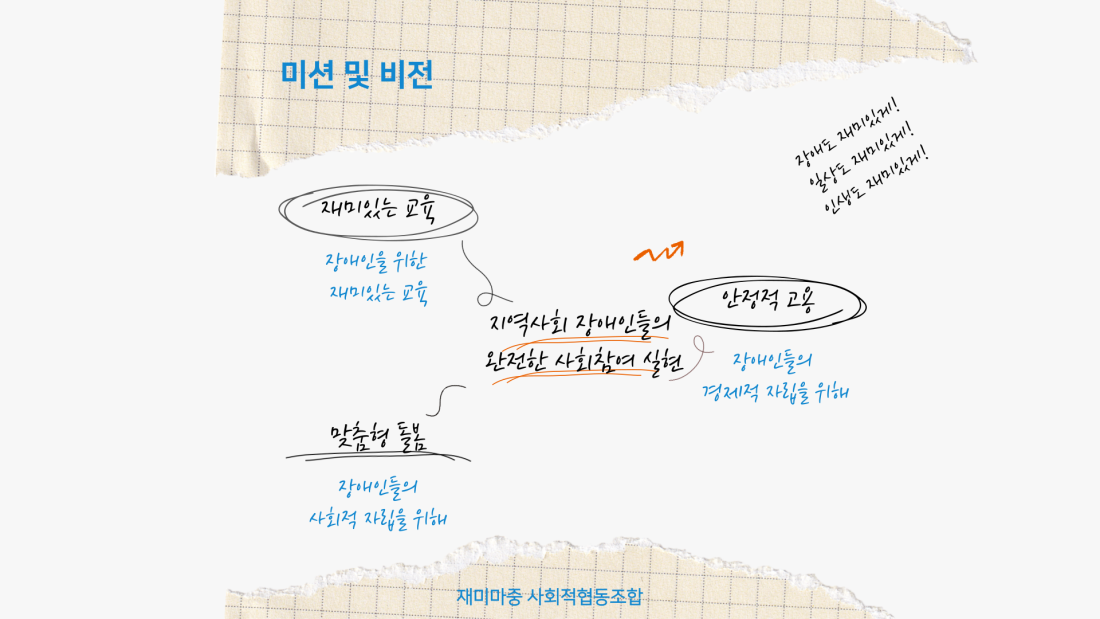 미션 및 비전
장애도 재미있게!
일상도 재미있게!
인생도 재미있게!
재미있는 교육
장애인을 위한
재미있는 교육
지역사회 장애인들의
완전한 사회참여 실현
안정적 고용
장애인들의
경제적 자립을 위해
맞춤형 돌봄
장애인들의
사회적 자립을 위해
재미마중 사회적협동조합